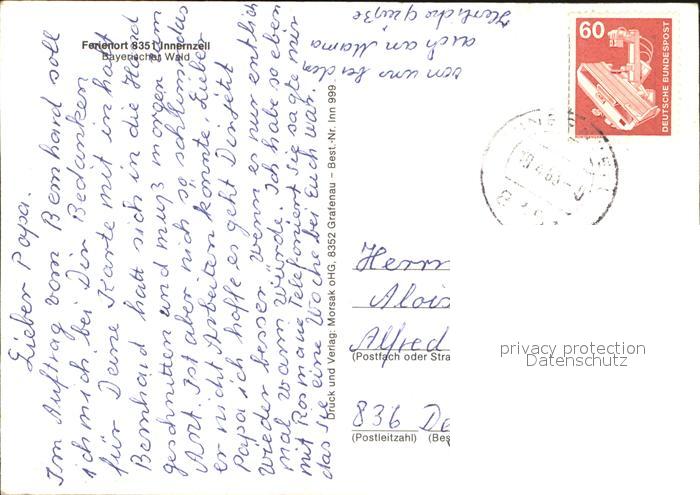 Ferienort 8351 Innernzell
Bayerischer Wald
Lieber Papa.
Im Auftrag vom Bernhard soll
ich mich bei Dir Bedanken
für Deine Karte mit inhalt
Bernhard hatt sich in die Hand
geschnitten und muß morgen zum
Arzt. Ist aber nich so schlimm das
er nicht Arbeiten könnte. Lieber
Papa ich hoffe es geht Dir jetzt
wieder besser wenn es nur entlich
mal warm würde. Ich habe so eben
mit Rosmarie Telefoniert sie sagte mir
das sie eine Woche bei Euch war.
von uns beiden
auch an Mama
Herzliche Grüße
Druck und Verlag: Morsak oHG, 8352 Grafenau – Best.-Nr. Inn 999
60
DEUTSCHE BUNDESPOST
Herrn
Alois
Alfred
(Postfach oder Stra
836 De
(Postleitzahl) (Bes
privacy protection
Datenschutz